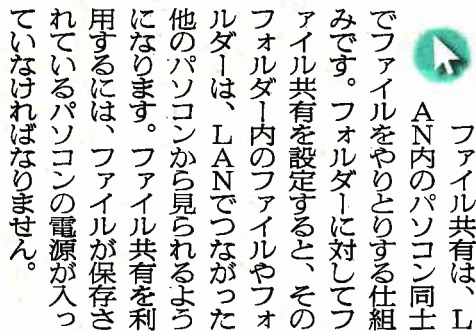 ファイル共有は、L
AN内のパソコン同士
でファイルをやりとりする仕組
みです。フォルダーに対してフ
ァイル共有を設定すると、その
フォルダー内のファイルやフォ
ルダーは、LANでつながった
他のパソコンから見られるよう
になります。ファイル共有を利
用するには、ファイルが保存さ
れているパソコンの電源が入っ
ていなければなりません。